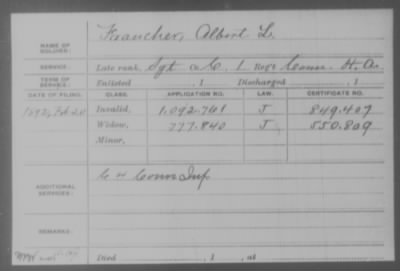 NAME OF SOLDIER: Francher, Albert L.
SERVICE: Late rank, Sgt Co. C, 1 Reg't Conn. H. A.
TERM OF SERVICE: Enlisted , 1 Discharged , 1
DATE OF FILING. CLASS. APPLICATION NO. LAW. CERTIFICATE NO.
1892, Feb 20 Invalid, 1.092.761 J 849.407
Widow, 777.840 J 550.809
Minor,
ADDITIONAL SERVICES: C 4 Conn Inf
REMARKS:
Died , 1 , at